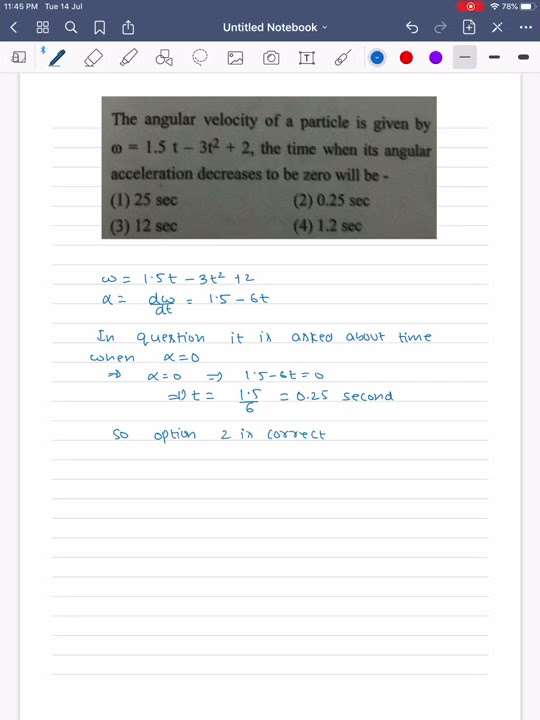 11:45 PM Tue 14 Jul
78%
Untitled Notebook
The angular velocity of a particle is given by
ω = 1.5 t – 3t² + 2, the time when its angular
acceleration decreases to be zero will be -
(1) 25 sec (2) 0.25 sec
(3) 12 sec (4) 1.2 sec
ω = 1.5t - 3t² + 2
α = dω/dt = 1.5 - 6t
In question it is asked about time
when α = 0
⇒ α = 0 ⇒ 1.5 - 6t = 0
⇒ t = 1.5/6 = 0.25 second
So option 2 is correct